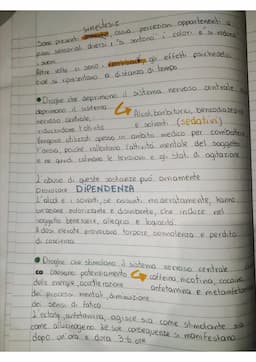 sinestesie
Sono presenti ossia percezioni appartenenti a
piani sensoriali diversi: "si sentono" i colori e si vedono
i suoni.
Altre volte si sono gli effetti psichedelici
cioè si ripresentano a distanza di tempo
● Droghe che deprimono il sistema nervoso centrale
deprimono il sistema
nervoso centrale, Alcol, barbiturici, benzodiazepine
riducendone l'attività e solventi (SEDATIVI)
Vengono utilizzati spesso in ambito medico per combattere
l'ansia, poiché rallentano l'attività mentale del soggetto
e ne quindi calmare le tensioni e gli stati di agitazione
L'abuso di queste sostanze può ovviamente
provocare DIPENDENZA
L'alcol e i solventi, se assunti moderatamente, hanno
un'azione euforizzante e disinibente, che induce nel
soggetto benessere, allegria e loquacità.
A dosi elevate provocano torpore, sonnolenza e perdita
di coscienza.
● Droghe che stimolano il sistema nervoso centrale
causano potenziamento caffeina, nicotina, cocaina
delle energie, accelerazione anfetamina e metanfetamina
dei processi mentali, diminuzione
dei sensi di fatica
L'ecstasy, anfetamina, agisce sia come stimolante sia
come allucinogeno. Le sue conseguenze si manifestano
dopo un'ora e dura 3-6 ore